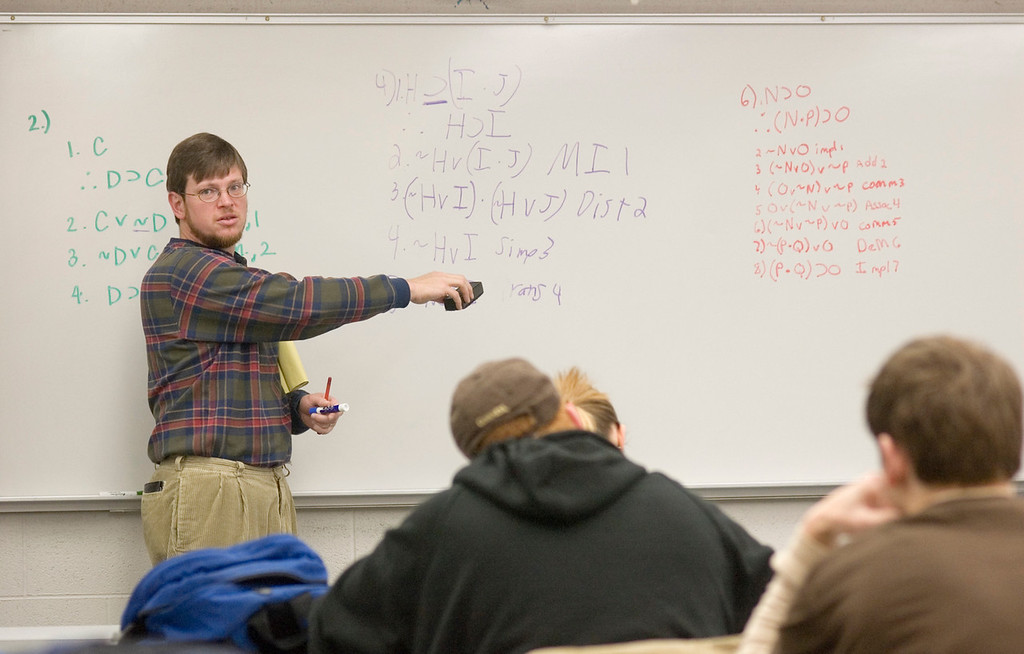 2.)
1. C
∴ D ⊃ C
2. C v ~D ,1
3. ~D v C ,2
4. D ⊃
4) 1. H ⊃ (I · J)
∴ H ⊃ I
2. ~H v (I · J) MI 1
3. (~H v I) · (~H v J) Dist 2
4. ~H v I Simp 3
4
6) . N ⊃ O
∴ (N · P) ⊃ O
2 ~N v O impl 1
3 (~N v O) v ~P add 2
4 (O v ~N) v ~P comm 3
5 O v (~N v ~P) Assoc 4
6) (~N v ~P) v O comm 5
7) ~(P · Q) v O DeM 6
8) (P · Q) ⊃ O Impl 7